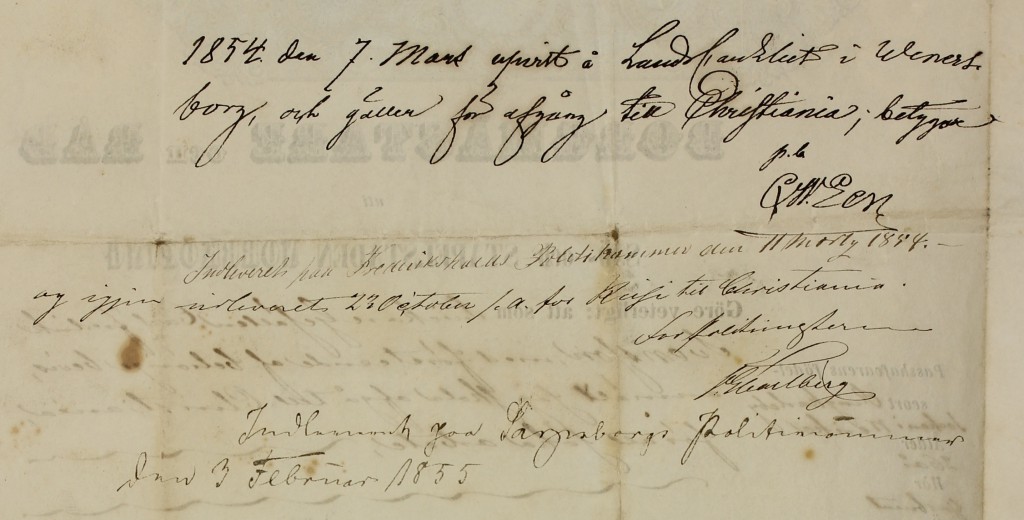 1854. den 7. Mars upvist å Lands Cancliet i Weners-
borg, och gäller för afgång till Christiania; betygar
p. la
Indleveret paa Frederikshalds Politikammer den 11 Marts 1854. –
og igjen indleveret 23 October s. a. for Reise til Christiania.
for Politimesteren
Indleveret paa Sarpsborgs Politikammer
den 3 Februar 1855